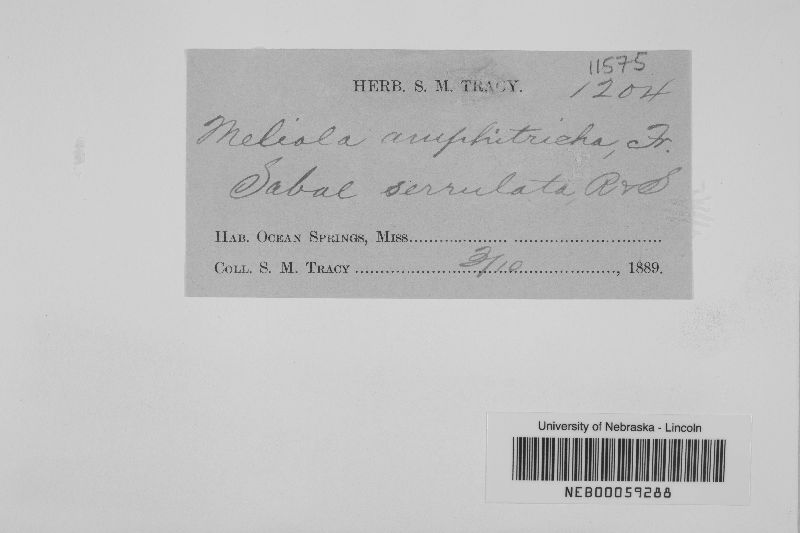 11575
HERB. S. M. TRACY. 1204
Meliola amphitricha, Fr.
Sabal serrulata, R & S
HAB. OCEAN SPRINGS, MISS.
COLL. S. M. TRACY 3/10, 1889.
University of Nebraska - Lincoln
NEB00059288